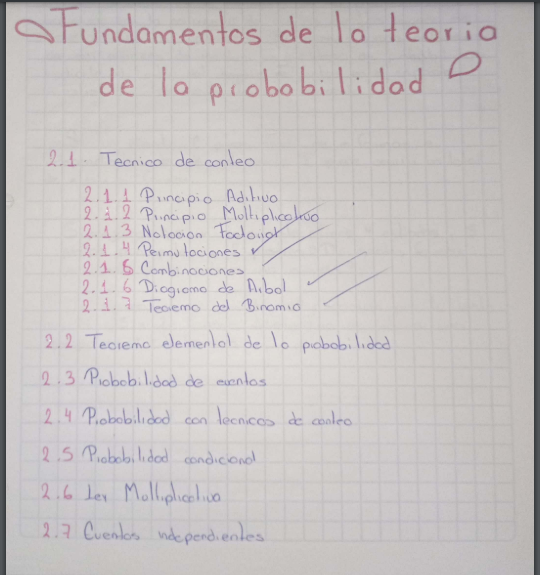 Fundamentos de la teoria
de la probabilidad
2.1. Tecnica de conteo
2.1.1 Principio Aditivo
2.1.2 Principio Multiplicativo
2.1.3 Notacion Factorial
2.1.4 Permutaciones
2.1.5 Combinaciones
2.1.6 Diagrama de Arbol
2.1.7 Teorema del Binomio
2.2 Teorema elemental de la probabilidad
2.3 Probabilidad de eventos
2.4 Probabilidad con tecnicas de conteo
2.5 Probabilidad condicional
2.6 Ley Multiplicativa
2.7 Eventos independientes